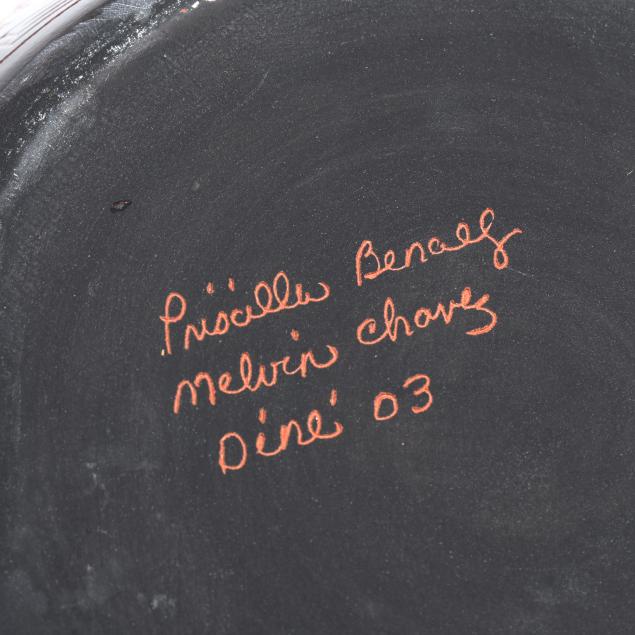 Priscilla Benally
Melvin Chavez
Diné 03